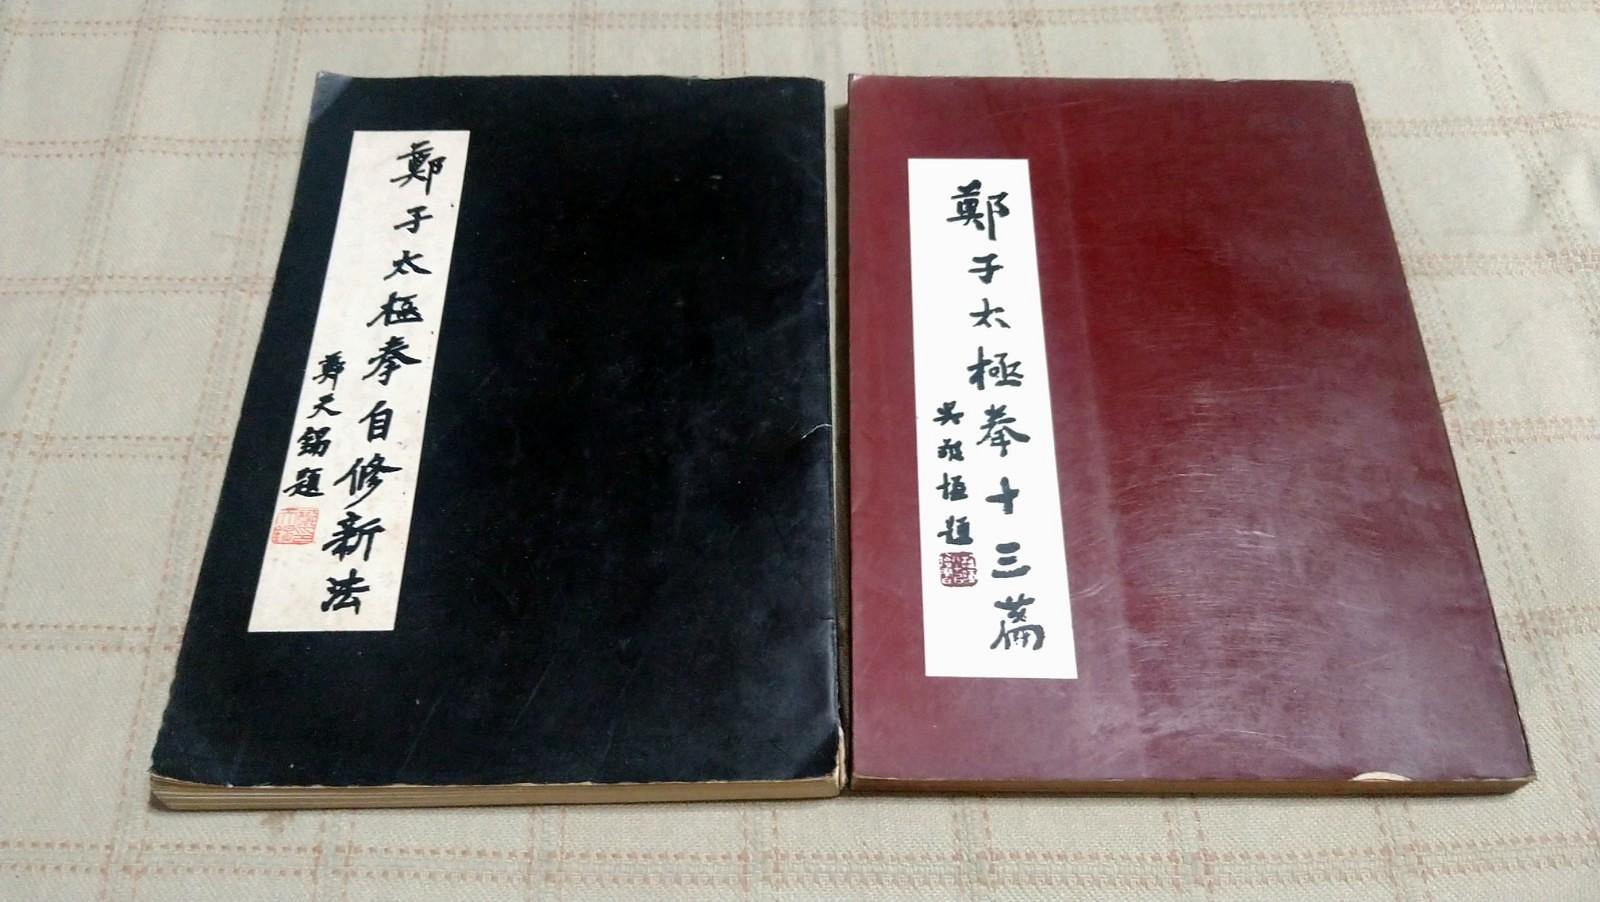 鄭子太極拳自修新法
鄭天錫題
鄭子太極拳十三篇
吳敬恆題